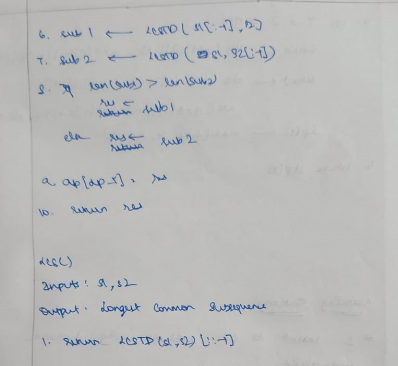 6. sub 1 ← LCSTD( s1[:-1], s2)
7. sub 2 ← LCSTD( s1, s2[:-1])
8. if len(sub1) > len(sub2)
res ←
return sub 1
else res ←
return sub 2
9. dp[dp_r] = res
10. return res
LCS()
Inputs: s1, s2
Output: Longest Common Subsequence
1. return LCSTD(s1, s2)[::-1]